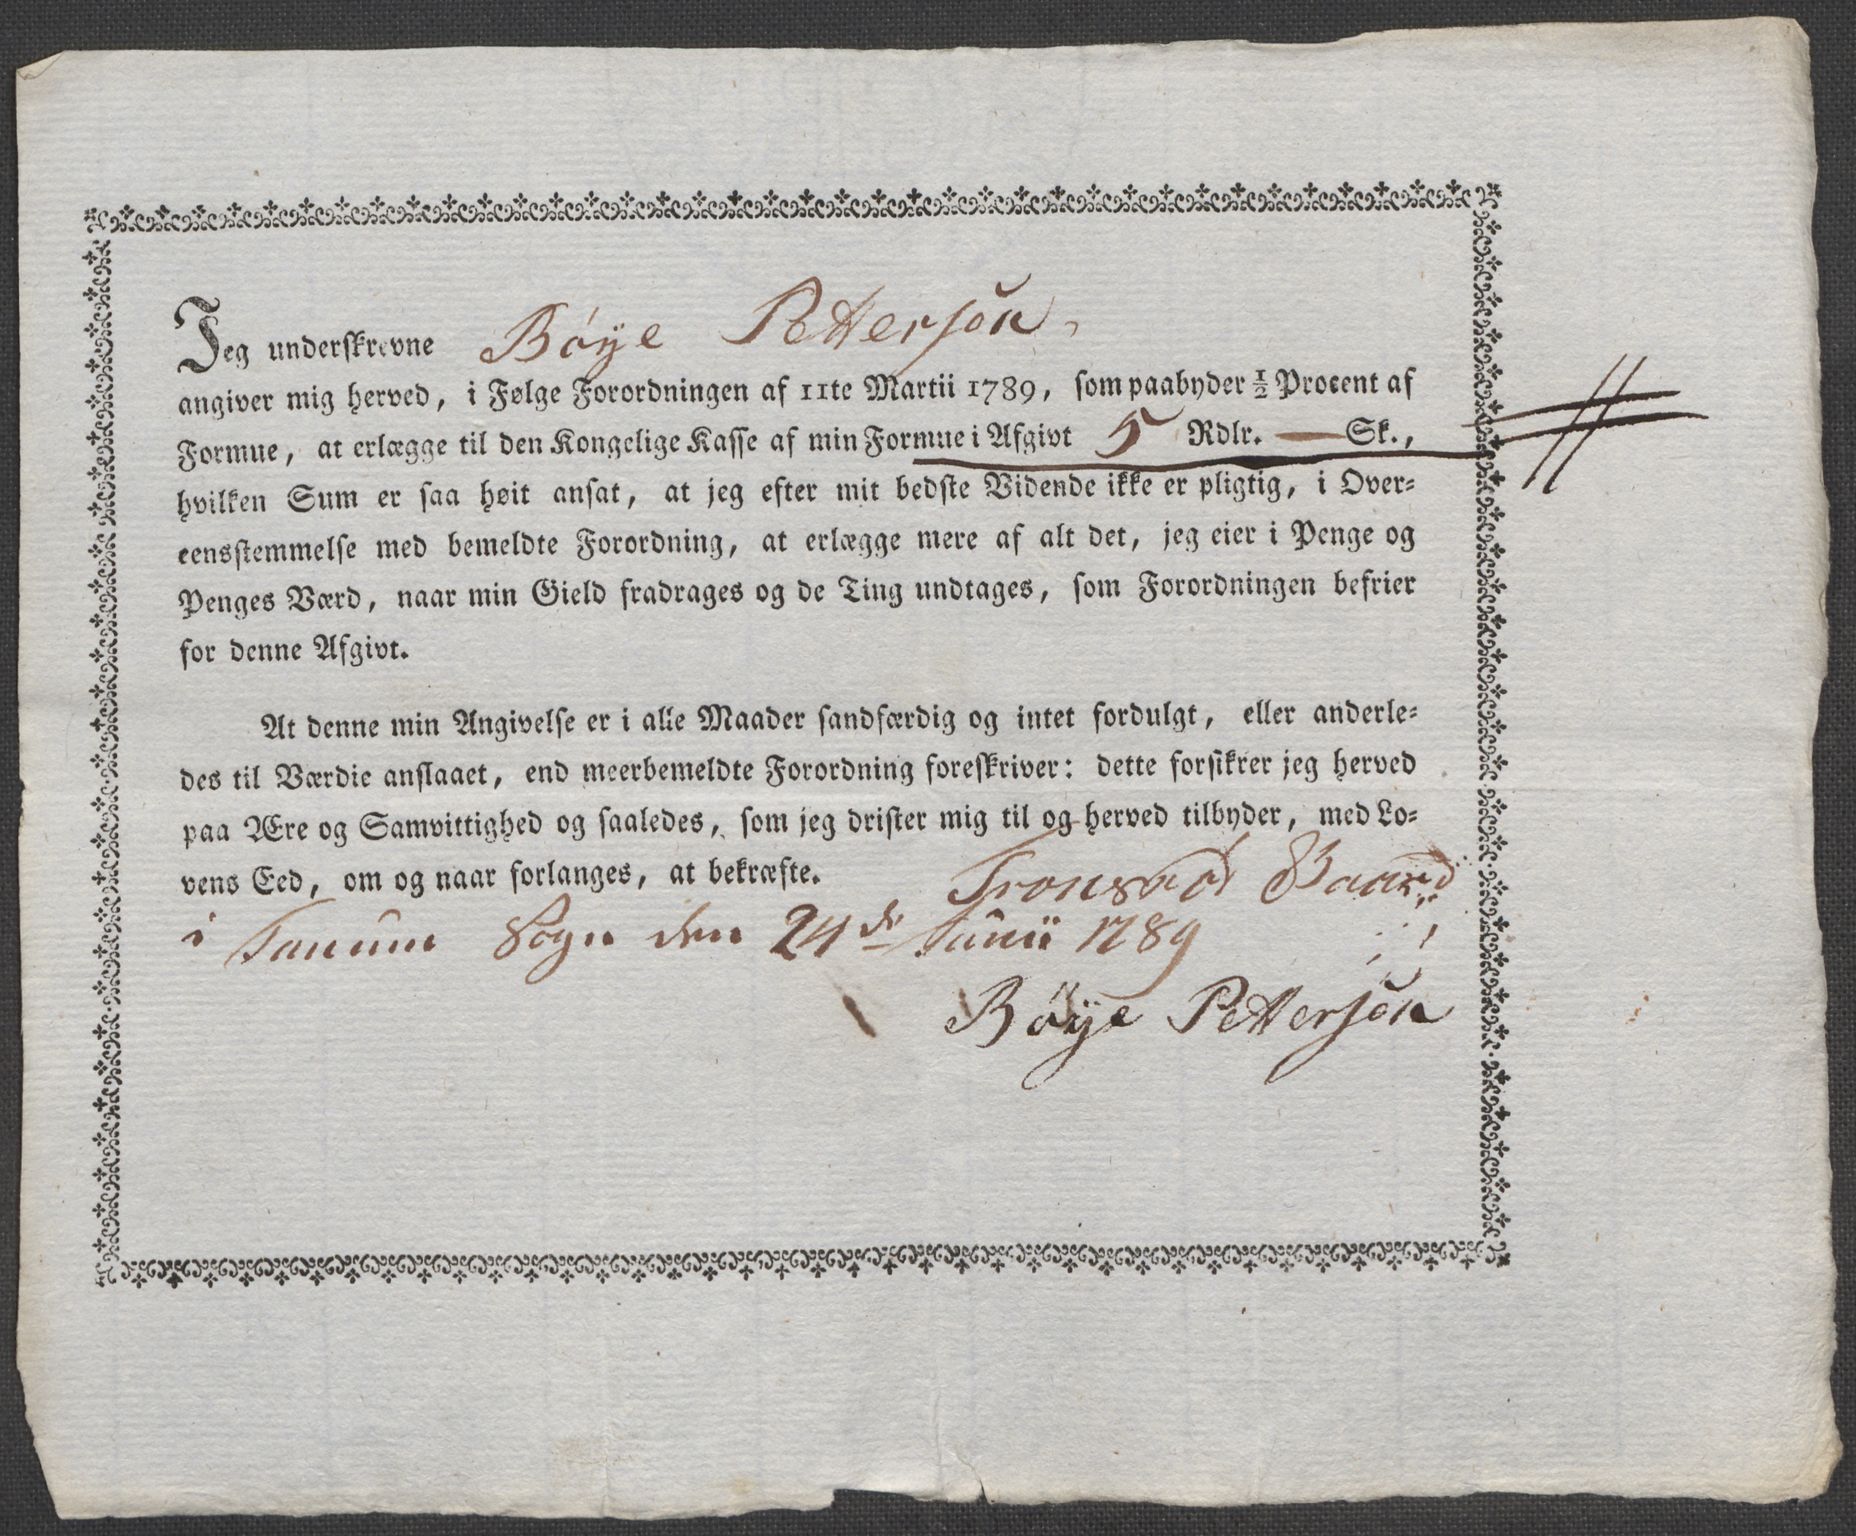 Jeg underskrevne Bøÿe Pettersøn
angiver mig herved, i Følge Forordningen af 11te Martii 1789, som paabyder ½ Procent af
Formue, at erlægge til den Kongelige Kasse af min Formue i Afgivt 5 Rdlr. — Sk.,
hvilken Sum er saa høit ansat, at jeg efter mit bedste Vidende ikke er pligtig, i Over-
eensstemmelse med bemeldte Forordning, at erlægge mere af alt det, jeg eier i Penge og
Penges Værd, naar min Gield fradrages og de Ting undtages, som Forordningen befrier
for denne Afgivt.
At denne min Angivelse er i alle Maader sandfærdig og intet fordulgt, eller anderle-
des til Værdie anslaaet, end meerbemeldte Forordning foreskriver: dette forsikrer jeg herved
paa Ære og Samvittighed og saaledes, som jeg drister mig til og herved tilbyder, med Lo-
vens Eed, om og naar forlanges, at bekræfte.
Gaard
i Tanum Sogn den 24de Junii 1789
Bøÿe Pettersøn